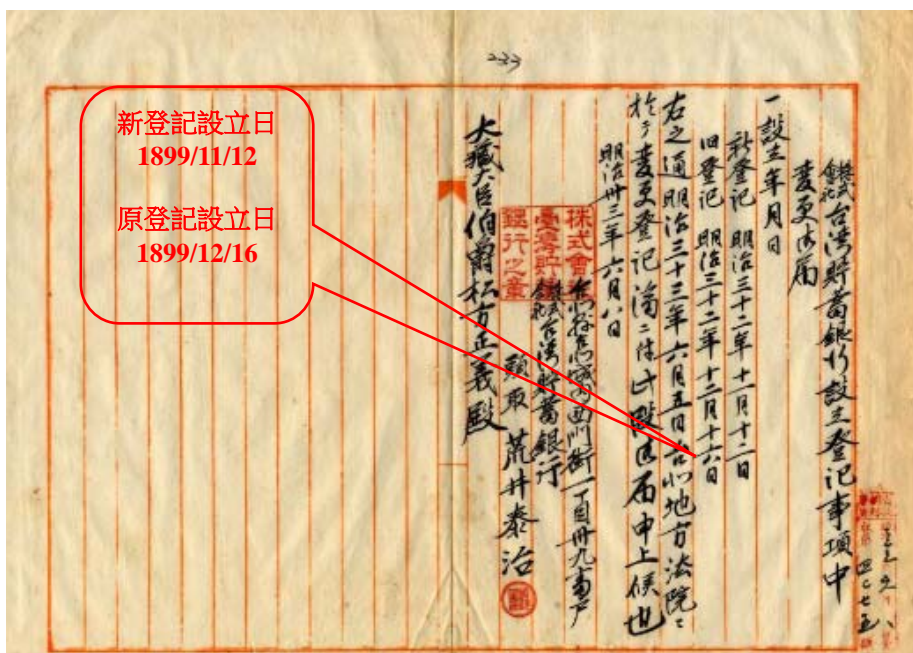 233
新登記設立日
1899/11/12
原登記設立日
1899/12/16
株式會社台湾貯蓄銀行設立登記事項中
変更御届
一設立年月日
新登記 明治三十二年十一月十二日
旧登記 明治三十二年十二月十六日
右之通明治三十三年六月五日台北地方法院ニ
於テ変更登記済ニ付此段御届申上候也
明治卅三年六月八日
台北県台北城内西門街一丁目卅九番戸
株式會社台湾貯蓄銀行
頭取 荒井泰治
株式會社
臺灣貯蓄
銀行之章
大蔵大臣伯爵松方正義殿